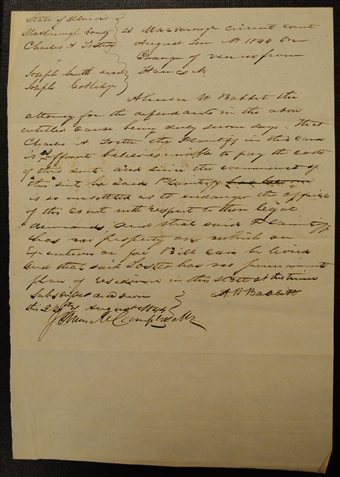 State of Illinois
McDonough County } ss McDonough circuit court
Charles A Foster August Term AD 1844 On
vs Change of venue from
Joseph Smith and Hancock
Joseph Coolidge
Almon W Babbit the
attorney for the defendants in the above
entitled cause being duly sworn says That
Charles A Foster the Plaintiff in this case
is as affiant believes unable to pay the costs
of this suit and since the commencement of
this suit he said Plaintiff
is so unsettled as to endanger the officers
of this Court with respect to their legal
demands and that said Plaintiff
has no property on which an
Execution or fee Bill can be levied
and that said Foster has no permanent
place of residence in this state at this time
Subscribed and sworn A W Babbitt
this 24th August 1844